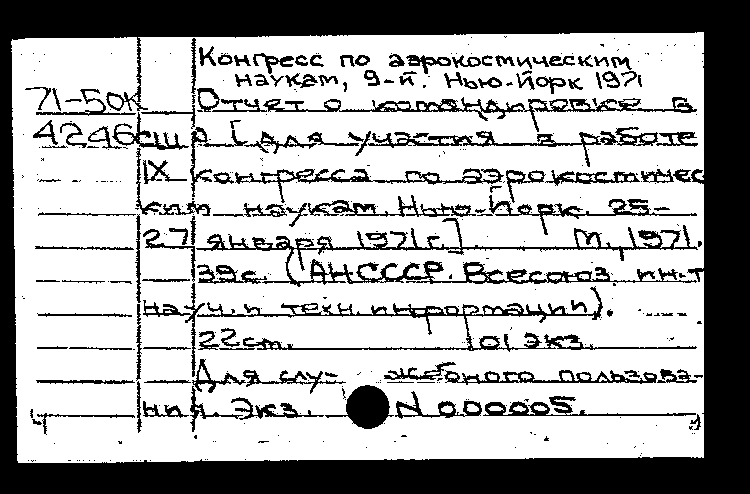 Конгресс по аэрокостическим
наукам, 9-й. Нью-Йорк 1971
71-50К Отчет о командировке в
4246 сша [для участия в работе
IX конгресса по аэрокостичес
ким наукам. Нью-Йорк. 25-
27 января 1971г.]. М., 1971.
39с. (АН СССР. Всесоюз. ин-т
науч. и техн. информации).
22см. 101 экз.
Для слу- жебного пользова-
ния. Экз. N 000005.